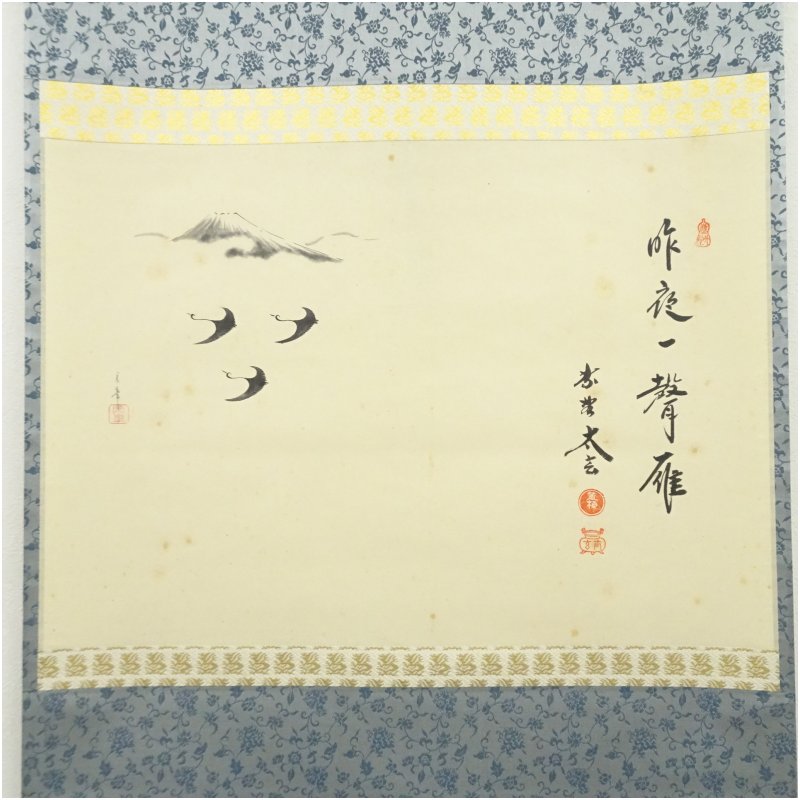 昨夜一聲雁
紫野 太玄